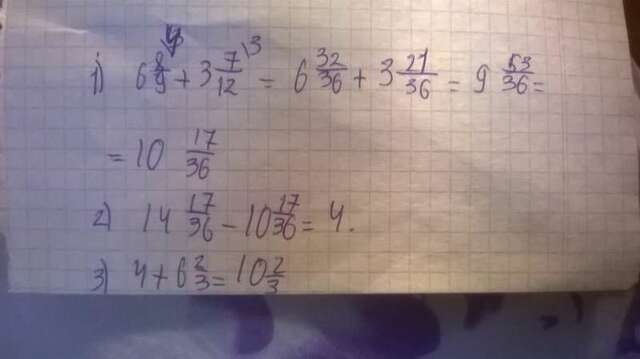 1) 6 8/9 \4 + 3 7/12 \3 = 6 32/36 + 3 21/36 = 9 53/36 =
= 10 17/36
2) 14 17/36 - 10 17/36 = 4.
3) 4 + 6 2/3 = 10 2/3